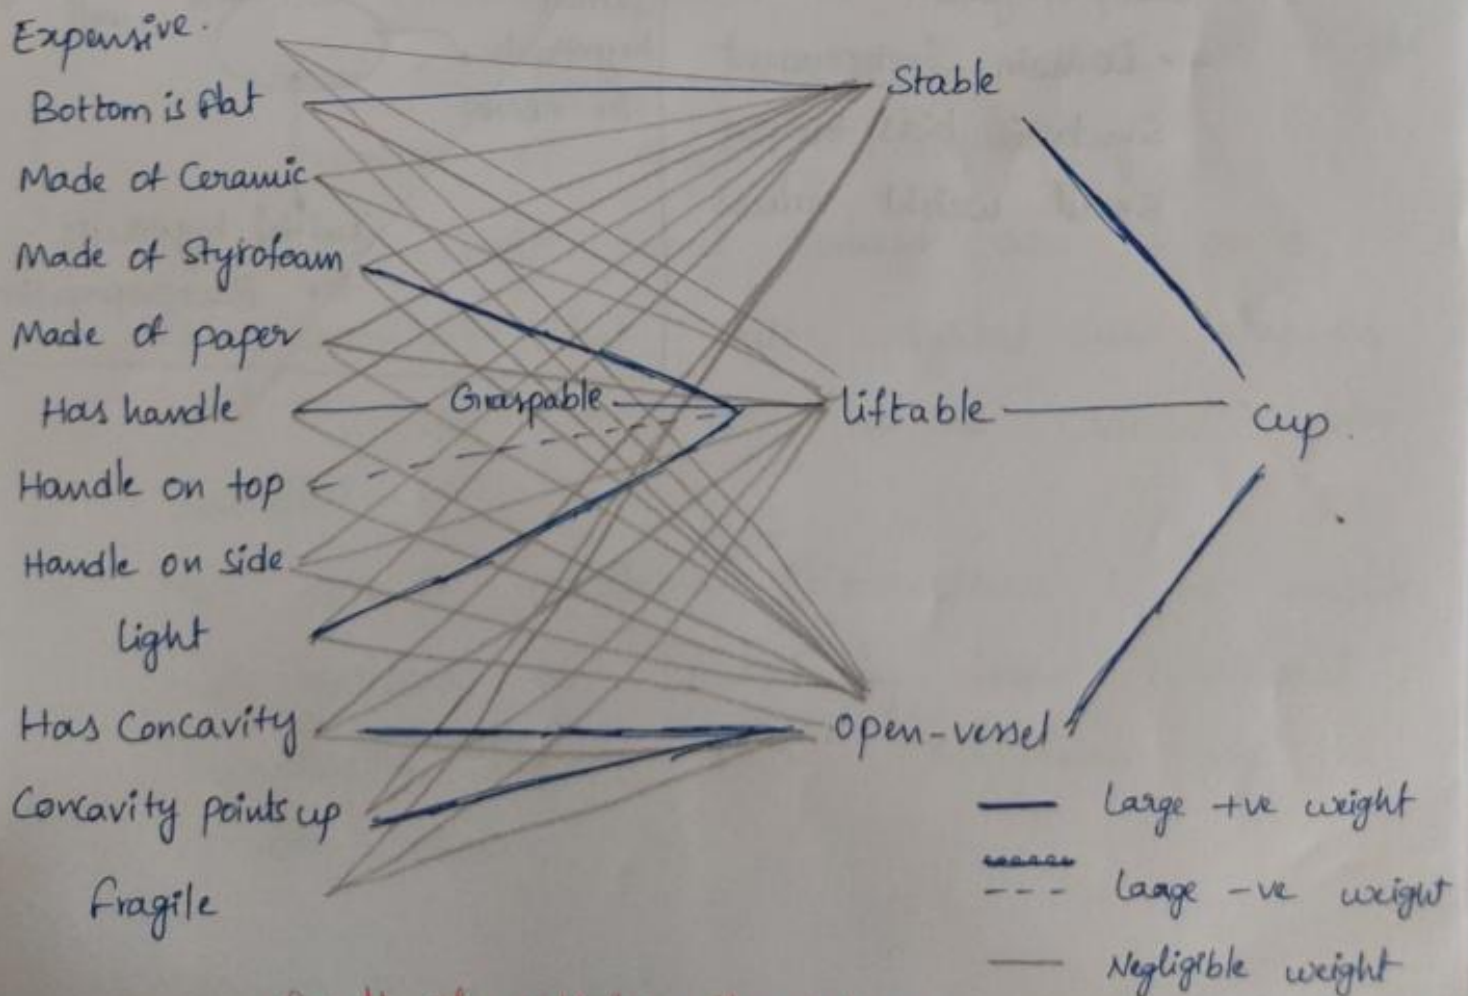 Expensive.
Bottom is flat
Made of Ceramic
Made of Styrofoam
Made of paper
Has handle
Handle on top
Handle on side
light
Has Concavity
Concavity points up
fragile
Graspable
Stable
liftable
Open-vessel
Cup.
large +ve weight
large -ve weight
Negligible weight